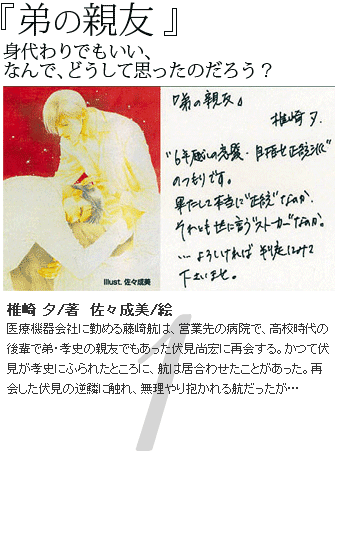 『弟の親友 』
身代わりでもいい、
なんで、どうして思ったのだろう？
『弟の親友』
椎崎 夕.
"6年越しの恋愛・目指せ正統派"
のつもりです。
果たして本当に"正統"なのか、
それとも世に言う"ストーカー"なのか。
… よろしければ 判定してみて
下さいませ。
Illust. 佐々成美
椎崎 夕/著 佐々成美/絵
医療機器会社に勤める藤崎航は、営業先の病院で、高校時代の
後輩で弟・孝史の親友でもあった伏見尚宏に再会する。かつて伏
見が孝史にふられたところに、航は居合わせたことがあった。再
会した伏見の逆鱗に触れ、無理やり抱かれる航だったが…
1